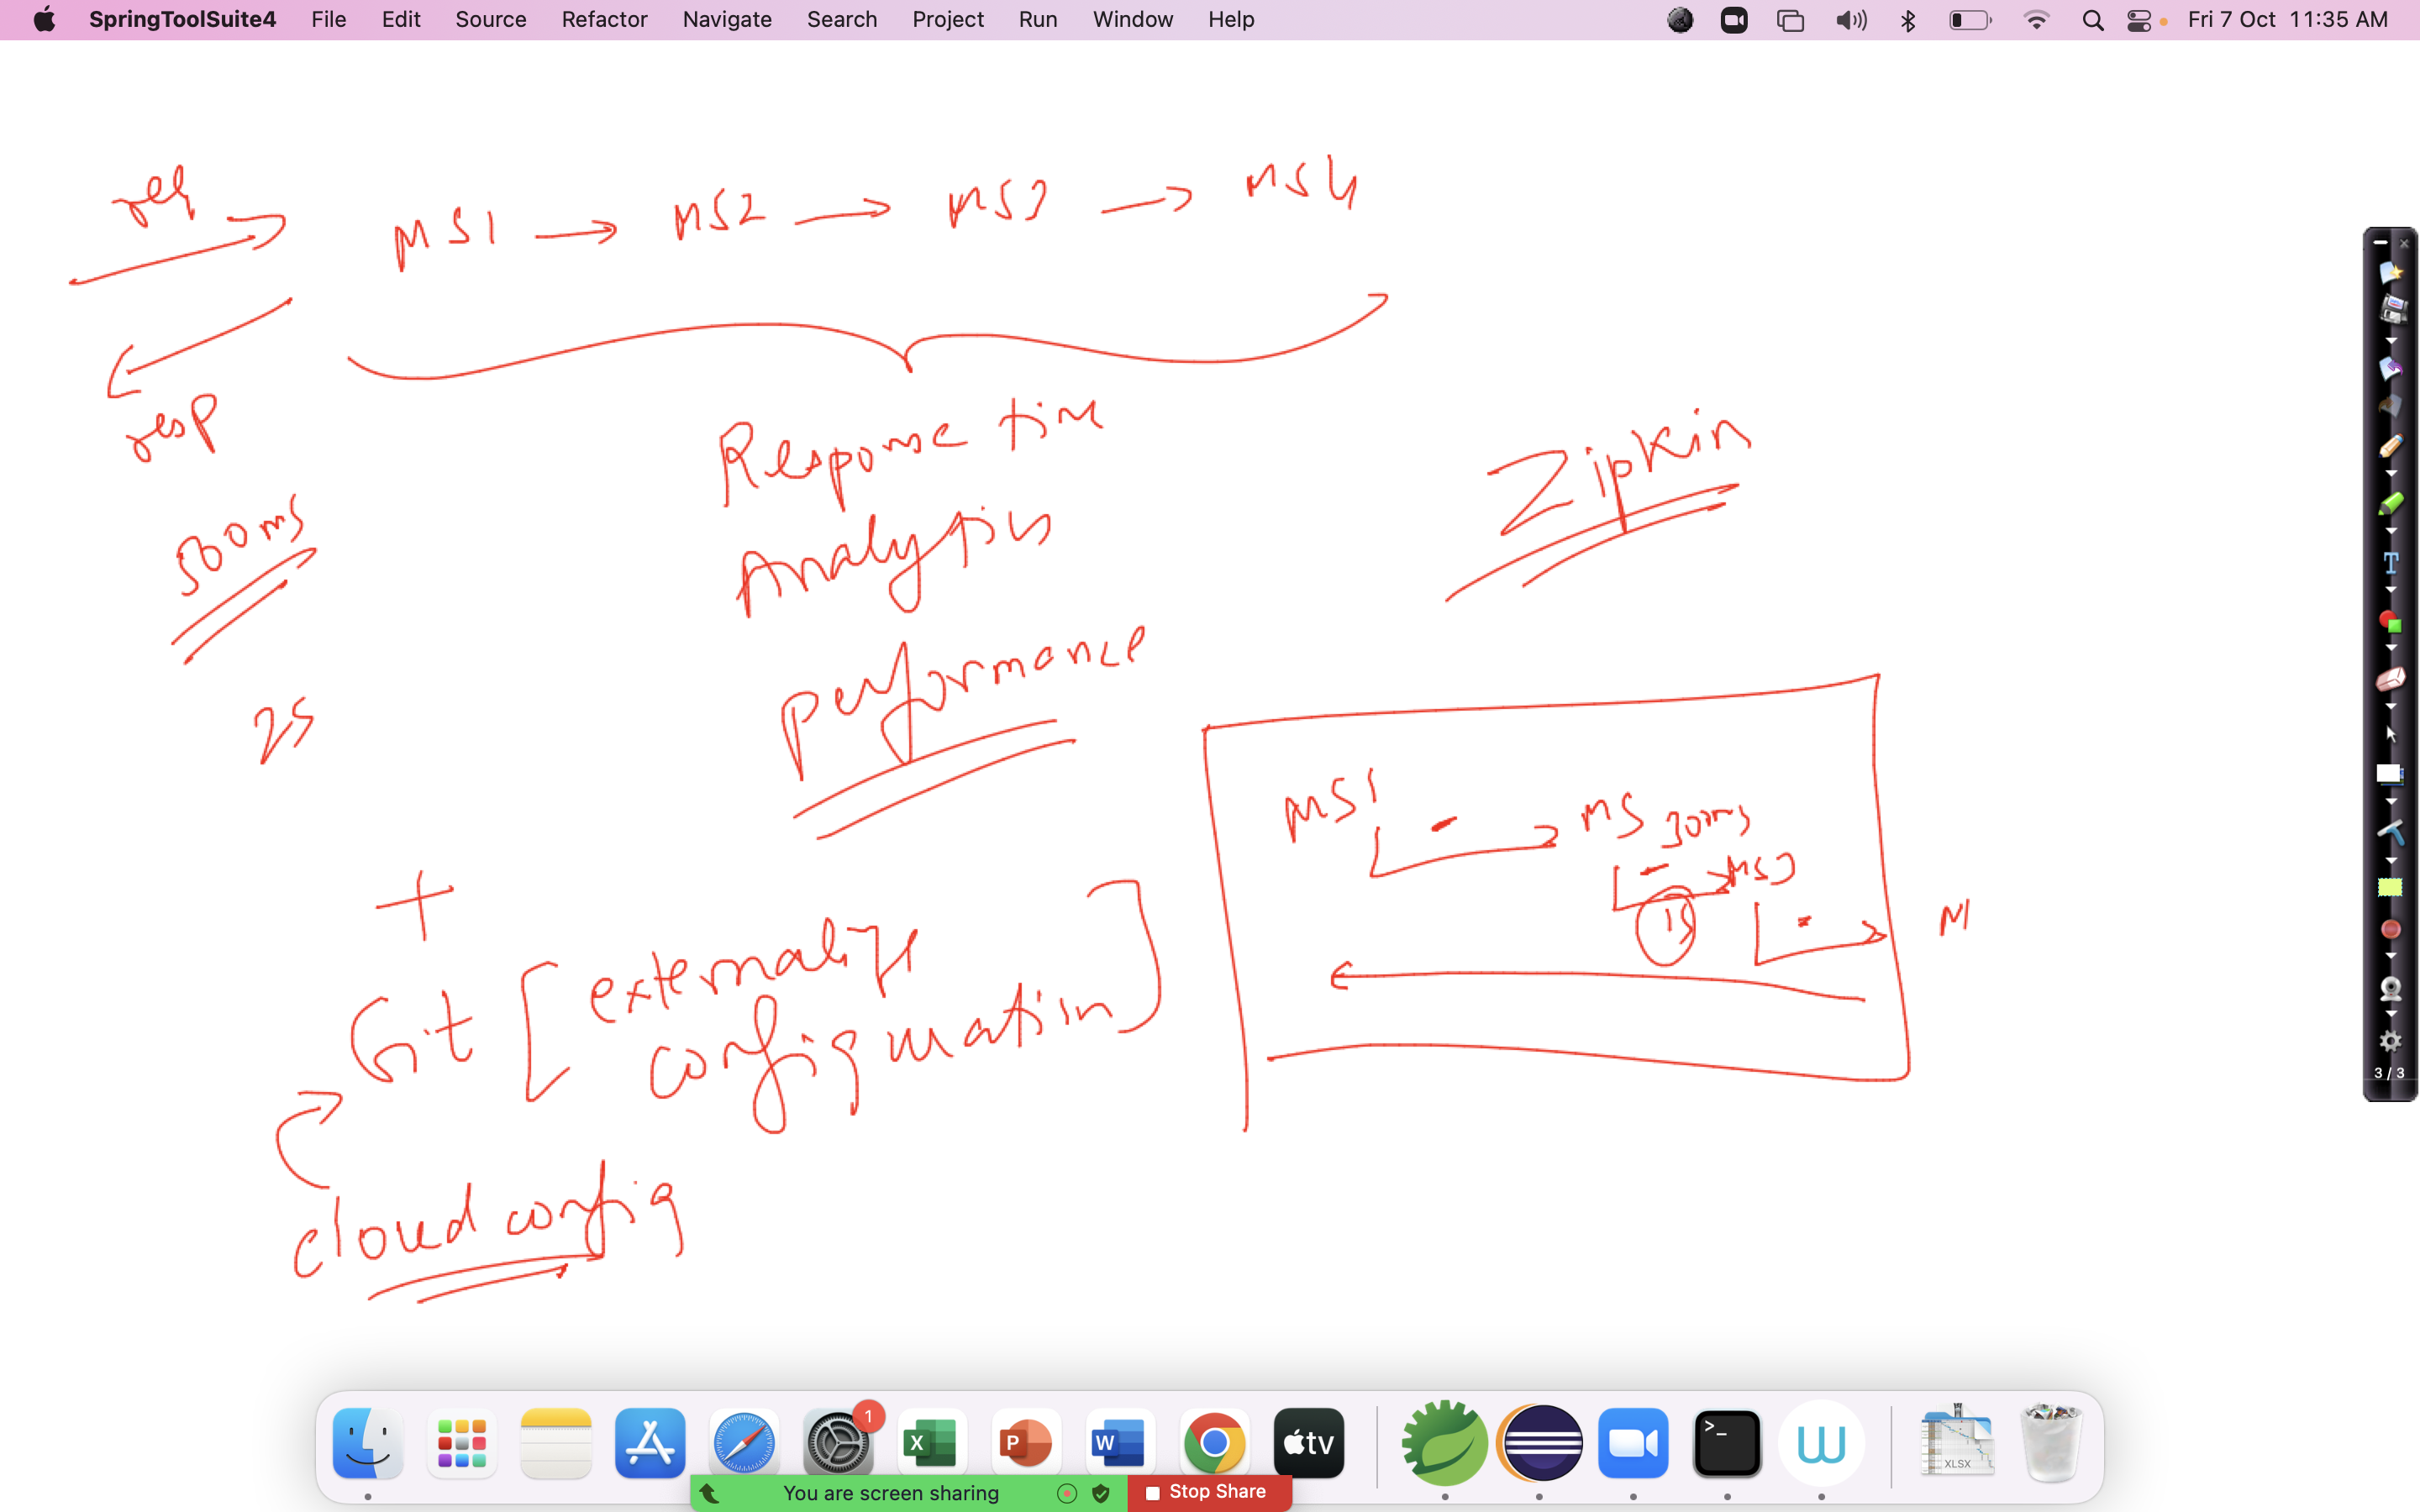 SpringToolSuite4 File Edit Source Refactor Navigate Search Project Run Window Help Fri 7 Oct 11:35 AM
req
MS1 → MS2 → MS3 → MS4
resp
500ms
2s
Response time
Analytics
performance
Zipkin
MS1
MS 300ms
MS3
1s
M
+
Git [externalize
configuration]
cloud config
3 / 3
1
X
P
W
tv
>_
W
XLSX
You are screen sharing
Stop Share